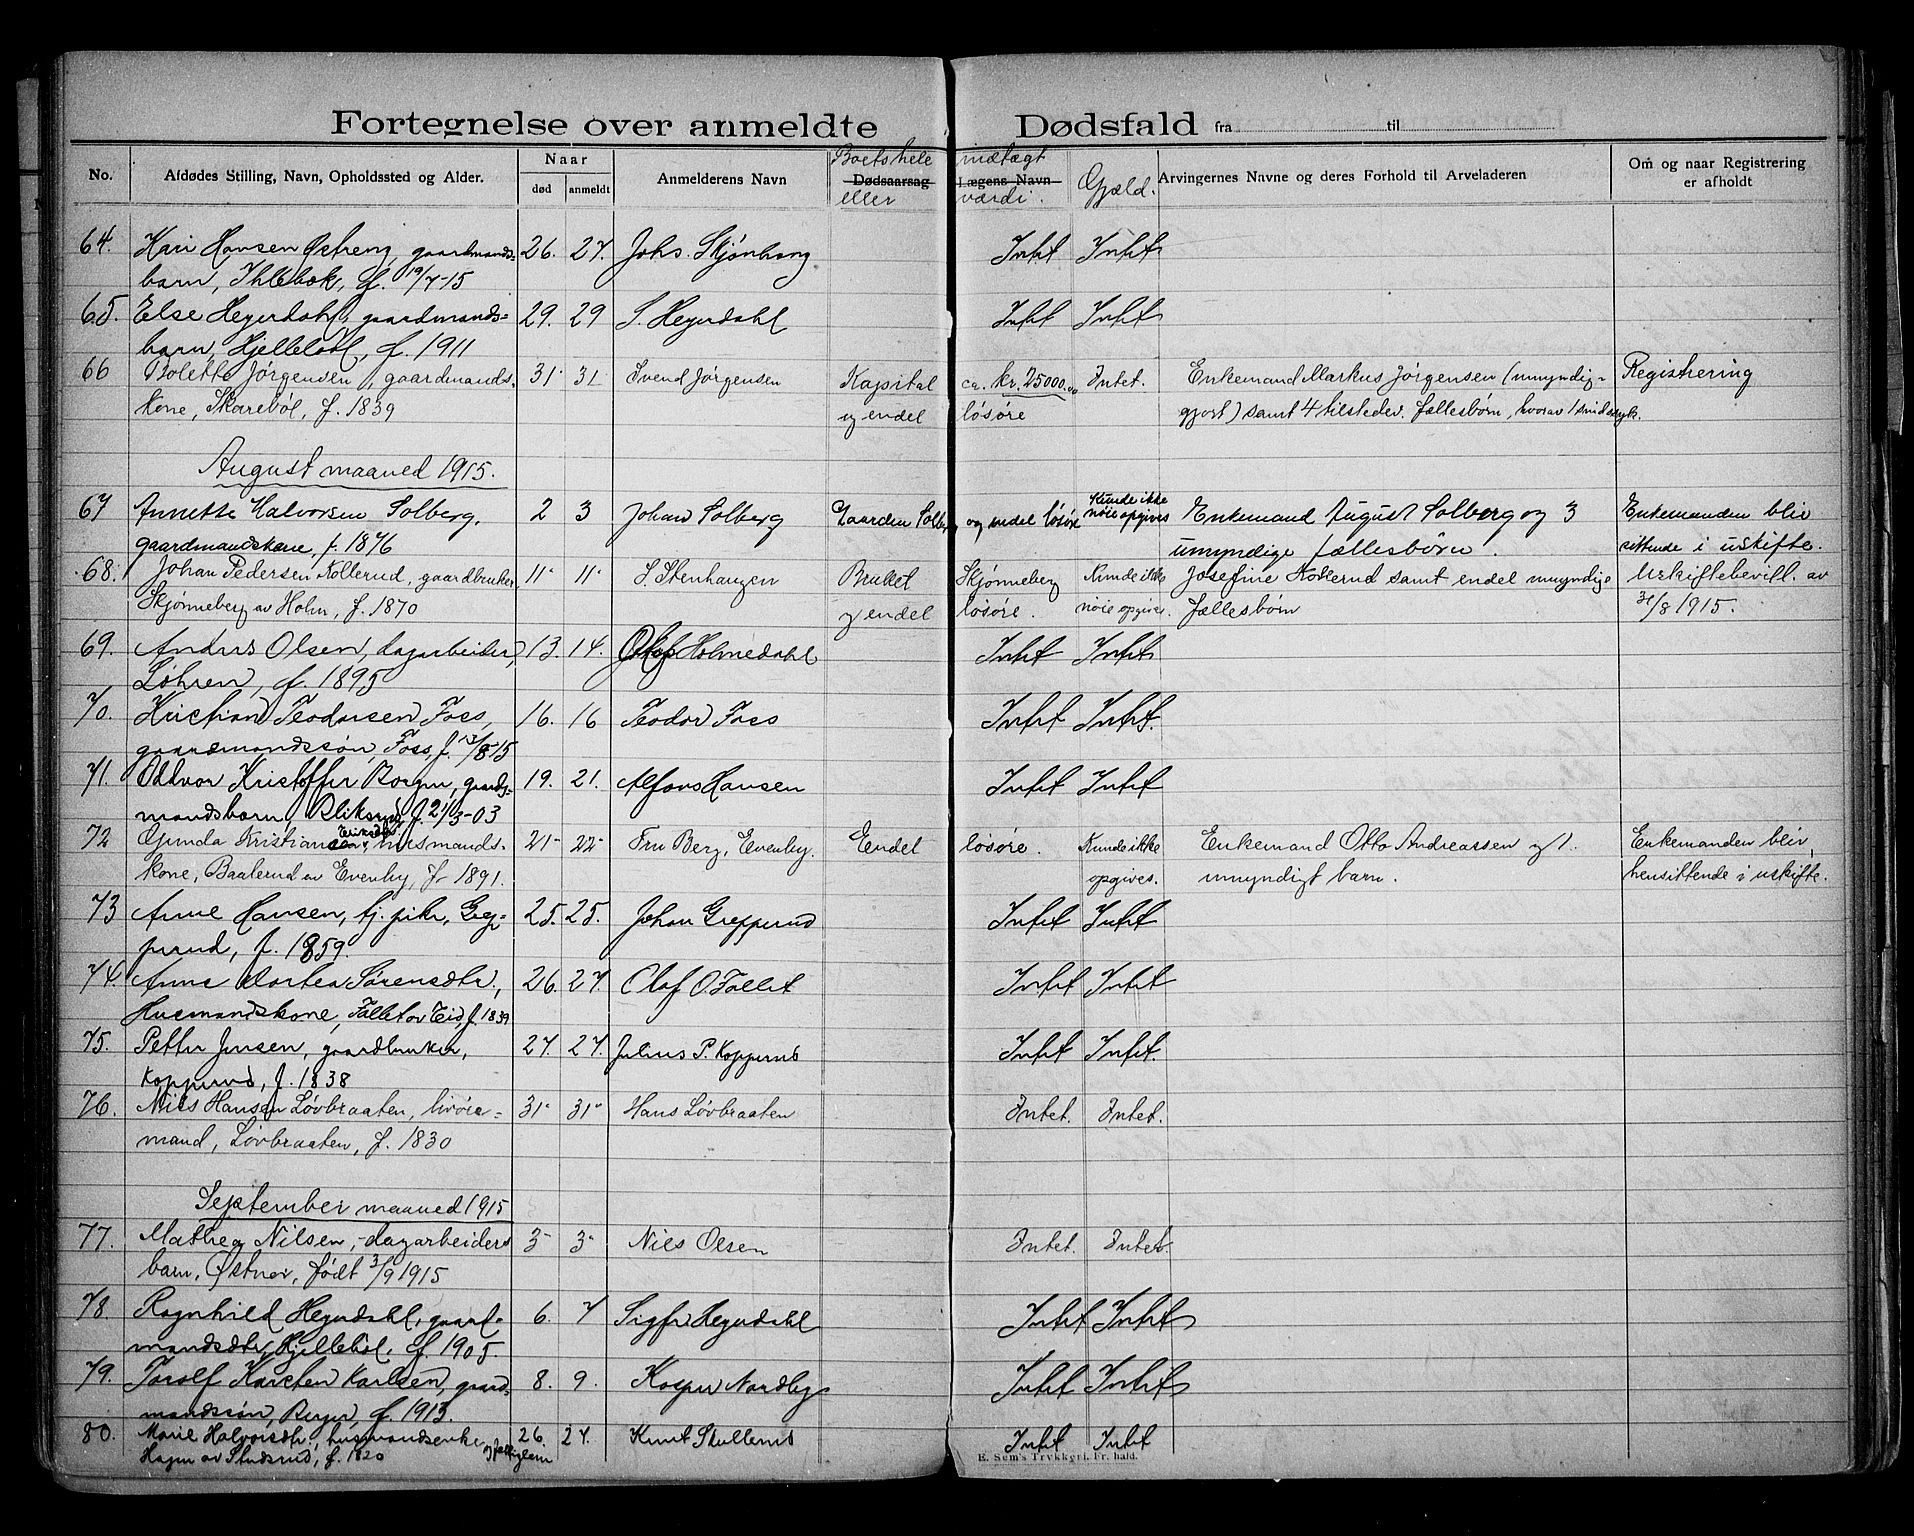 Fortegnelse over anmeldte Dødsfald fra til
No. Afdødes Stilling, Navn, Opholdssted og Alder. Naar død anmeldt Anmelderens Navn Dødsaarsag Lægens Navn Arvingernes Navne og deres Forhold til Arveladeren Om og naar Registrering er afholdt
Boets hele indtægt
eller værdi. Gjæld.
64. Kari Hansen Østreng, gaardmands- 26. 27. Johs. Skjønhaug Intet Intet
barn, Ihlebæk, f. 19/7-15
65. Else Heyerdahl, gaardmands- 29. 29 S. Heyerdahl Intet Intet
barn, Hjellebøl, f. 1911
66 Bolette Jørgensen, gaardmands- 31 31 Svend Jørgensen Kapital ca. kr. 25000.00 Intet. Enkemand Markus Jørgensen (umyndig- Registrering
kone, Skarebøl, f. 1839 og endel løsøre gjort) samt 4 tilstedev. fællesbørn, hvorav 1 sindssyk.
August maaned 1915.
67 Annette Halvorsen Solberg, 2 3 Johan Solberg Gaarden Solberg og endel løsøre Kunde ikke nøie opgives Enkemand August Solberg og 3 Enkemanden bliv
gaardmandskone, f. 1876 umyndige fællesbørn. sittende i uskifte.
68. Johan Pedersen Kollerud, gaardbruker 11 11 S. Stenhaugen Bruket Skjønneberg Kunde ikke Josefine Kollerud samt endel umyndige Uskiftebevill. av
Skjønneberg av Holm, f. 1870 og endel løsøre. nøie opgives. fællesbørn 31/8 1915.
69. Anders Olsen, dagarbeider, 13. 14. Olaf Holmedahl Intet Intet
Løhren, f. 1895
70. Kristian Teodorsen Foss, 16. 16 Teodor Foss Intet Intet.
gaardmandssøn, Foss, f. 13/8-15
71. Oddvor Kristoffer Borgen, gaard- 19. 21. Alfons Hansen Intet Intet
mandsbarn, Bliksrud f. 21/3-03
72 Gunda Kristiansen, husmands- 21 22 Fru Berg, Evenby. Endel løsøre. Kunde ikke Enkemand Otto Andreassen og 1 Enkemanden bliv
kone, Baalerud av Evenby, f. 1891. opgives. umyndigt barn. hensittende i uskifte.
73 Anne Hansen, fj. pike, Grep- 25. 25. Johan Grepperud Intet Intet
perud, f. 1859.
74. Anne Dortea Sørensdtr., 26. 27. Olaf O. Fallet Intet Intet
Husmandskone, Fallet av Eid, f. 1839
75. Petter Jensen, gaardbruker, 27. 27. Julius P. Kopperud Intet Intet.
Kopperud, f. 1838
76. Niels Hansen Løvbraaten, livøre- 31 31 Hans Løvbraaten Intet. Intet.
mand, Løvbraaten, f. 1830
September maaned 1915
77. Mathea Nilsen, dagarbeiders 3 3 Niels Olsen Intet. Intet.
barn, Østner, født 3/9 1915
78. Ragnhild Heyerdahl, gaard- 6. 7 Sigfr. Heyerdahl Intet Intet
mandsdtr., Hjellebøl, f. 1905.
79. Torolf Karsten Karlsen, gaard- 8. 9. Kasper Nordby Intet Intet
mandssøn, Berger, f. 1913.
80. Marie Halvorsdtr., husmandsenke og fattiglem 26 27. Knut Skullerud Intet Intet
Hagen av Studsrud, f. 1820
E. Sem's Trykkeri. Fr. hald.